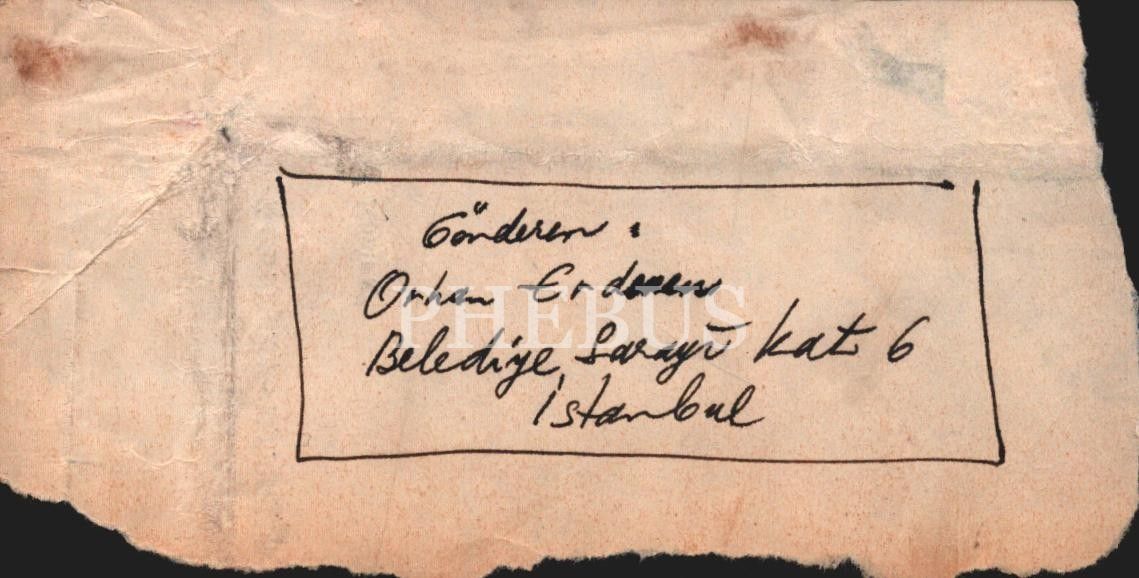 Gönderen :
Orhan Erdenen
Belediye Sarayı kat 6
İstanbul
PHEBUS